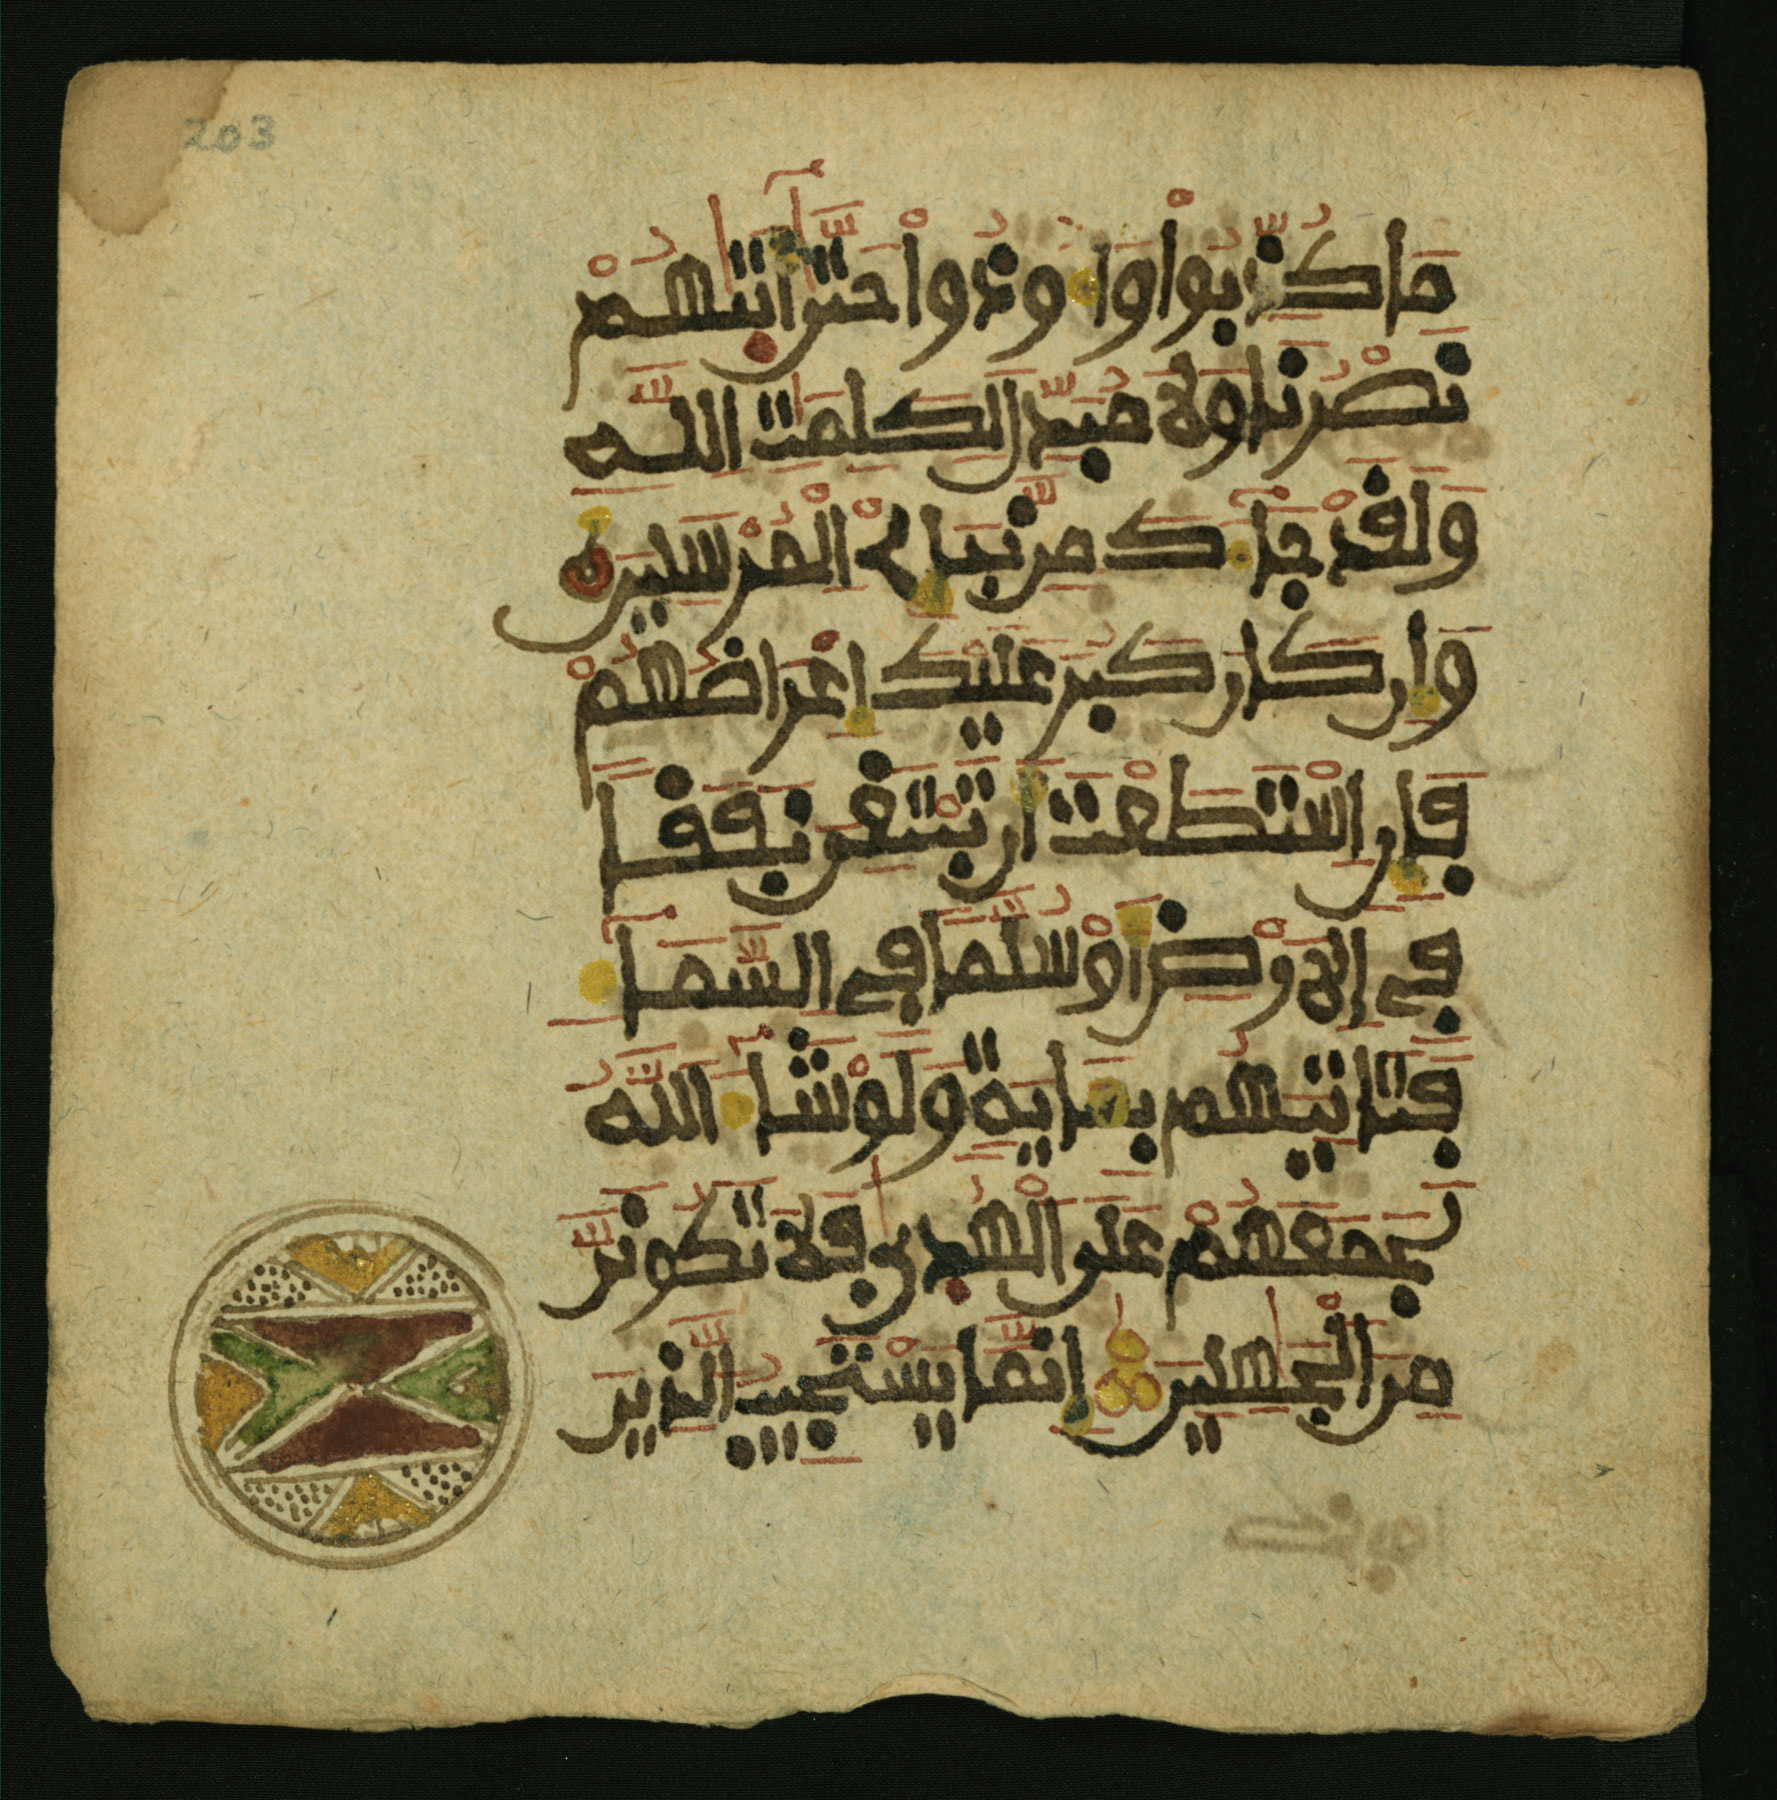 203
ما كُذِّبُواْ وَأُوذُواْ حَتَّىٰٓ أَتَىٰهُمْ
نَصْرُنَا وَلَا مُبَدِّلَ لِكَلِمَٰتِ اللَّهِ
وَلَقَدْ جَآءَكَ مِن نَّبَإِىْ الْمُرْسَلِينَ
وَإِن كَانَ كَبُرَ عَلَيْكَ إِعْرَاضُهُمْ
فَإِنِ اسْتَطَعْتَ أَن تَبْتَغِىَ نَفَقًا
فِى الَارْضِ أَوْ سُلَّمًا فِى السَّمَآءِ
فَتَاتِيَهُم بِـَٔايَةٍ وَلَوْ شَآءَ اللَّهُ
لَجَمَعَهُمْ عَلَى الْهُدَىٰ فَلَا تَكُونَنَّ
مِنَ الْجَٰهِلِينَ إِنَّمَا يَسْتَجِيبُ الَّذِينَ